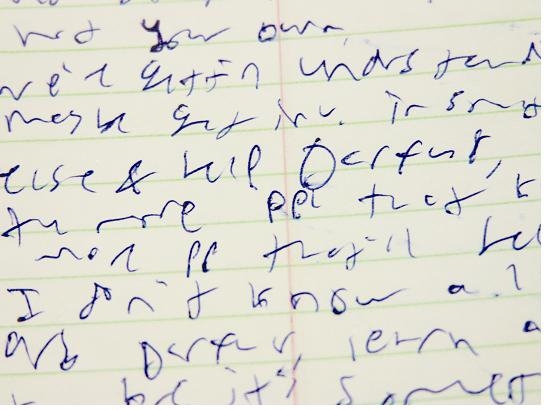 not your own
we'll gettin undrstand
maybe get inv. in smt
else & help Darfur,
the more ppl that k
more pp they'll hel
I don't know a l
Darfur, learn a
but it's somet